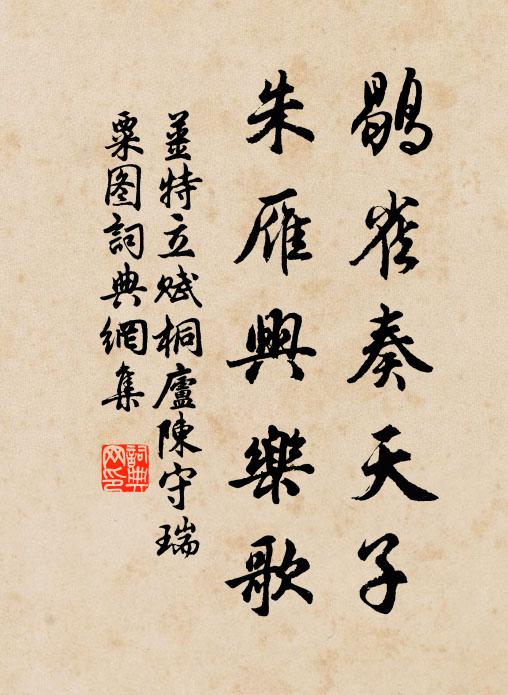 鶡雀奏天子
朱雁興樂歌
薑特立賦桐廬陳守瑞
粟图詞典網集
詞典网印